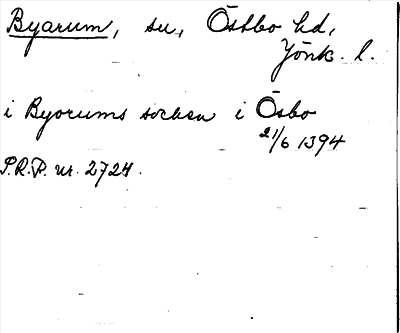 Byarum, sn, Östbo hd,
Jönk. l.
i Byorums sochen i Ösbo
21/6 1394
P.R.P. nr. 2724.